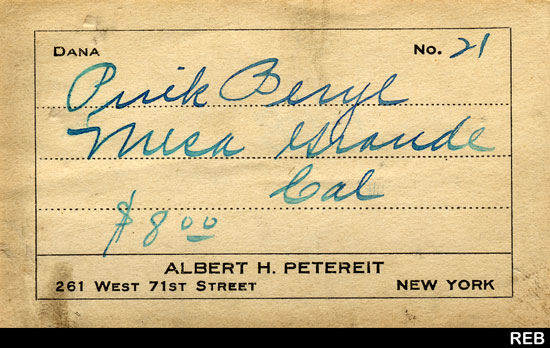 DANA No. 21
Pink Beryl
Mesa Grande
Cal
$8.00
ALBERT H. PETEREIT
261 WEST 71ST STREET NEW YORK
REB